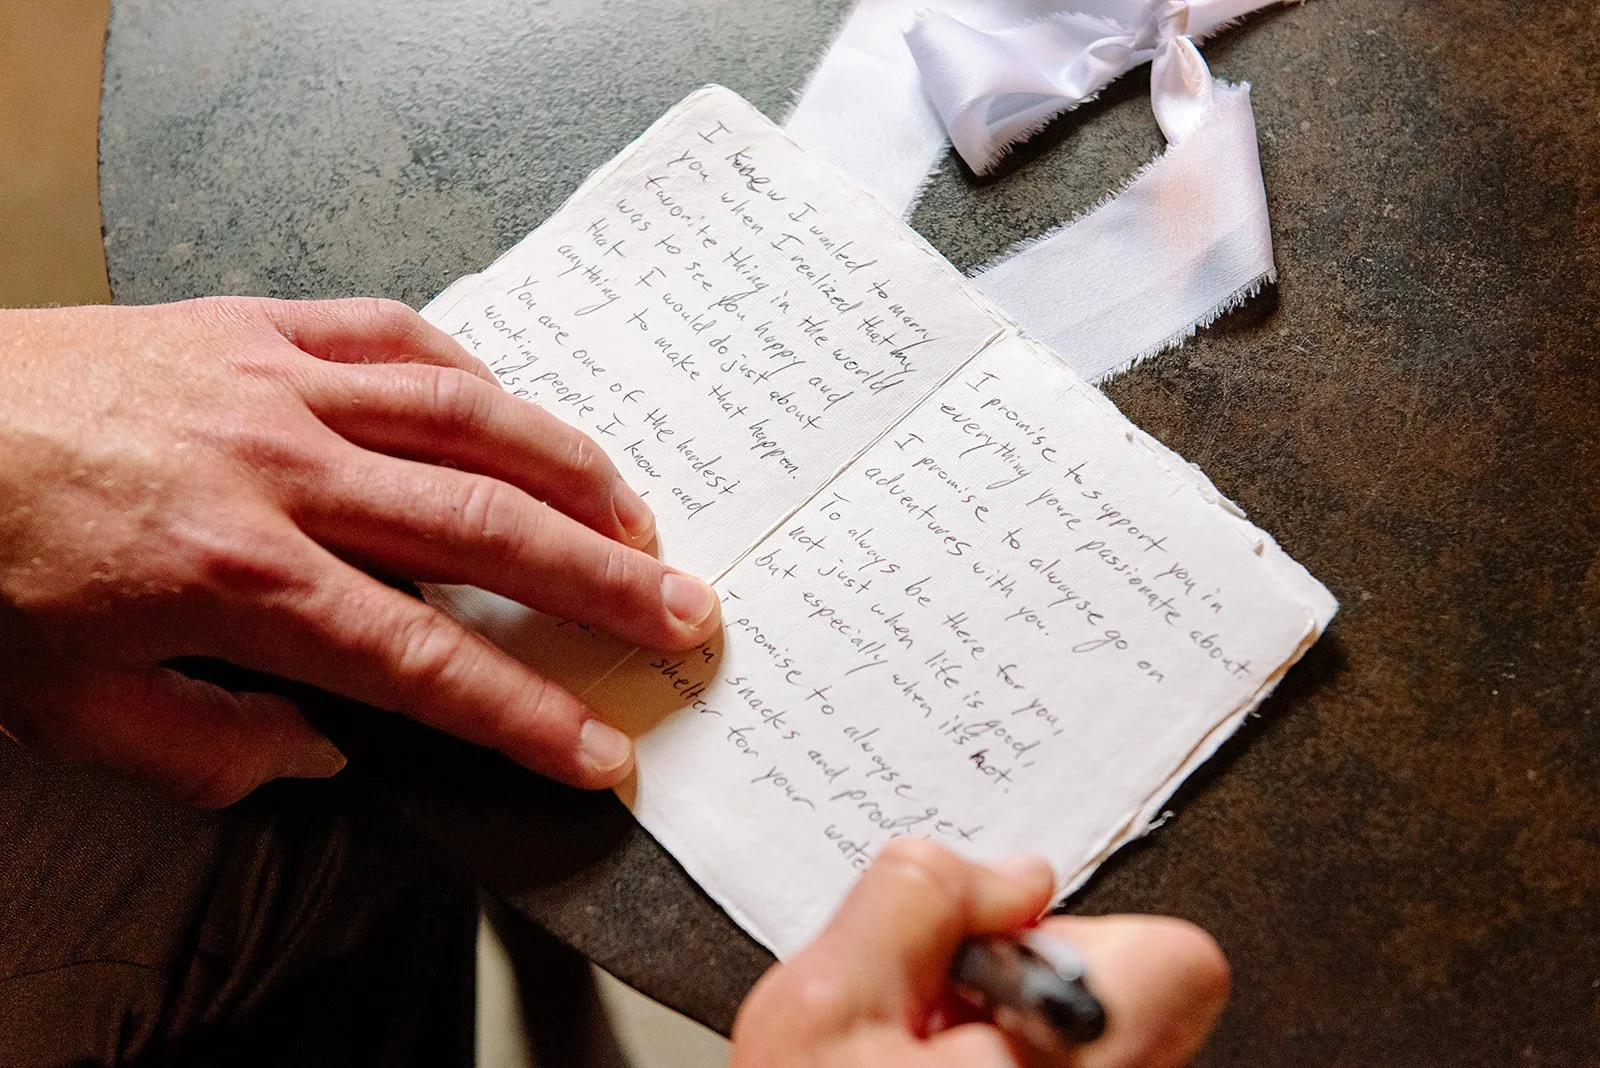 I knew I wanted to marry
you when I realized that my
favorite thing in the world
was to see you happy and
that I would do just about
anything to make that happen.
You are one of the hardest
working people I know and
you
I promise to support you in
everything youre passionate about.
I promise to alwayse go on
adventures with you.
To always be there for you,
not just when life is good,
but especially when its not.
I promise to alwayse get
snacks and
shelter for your